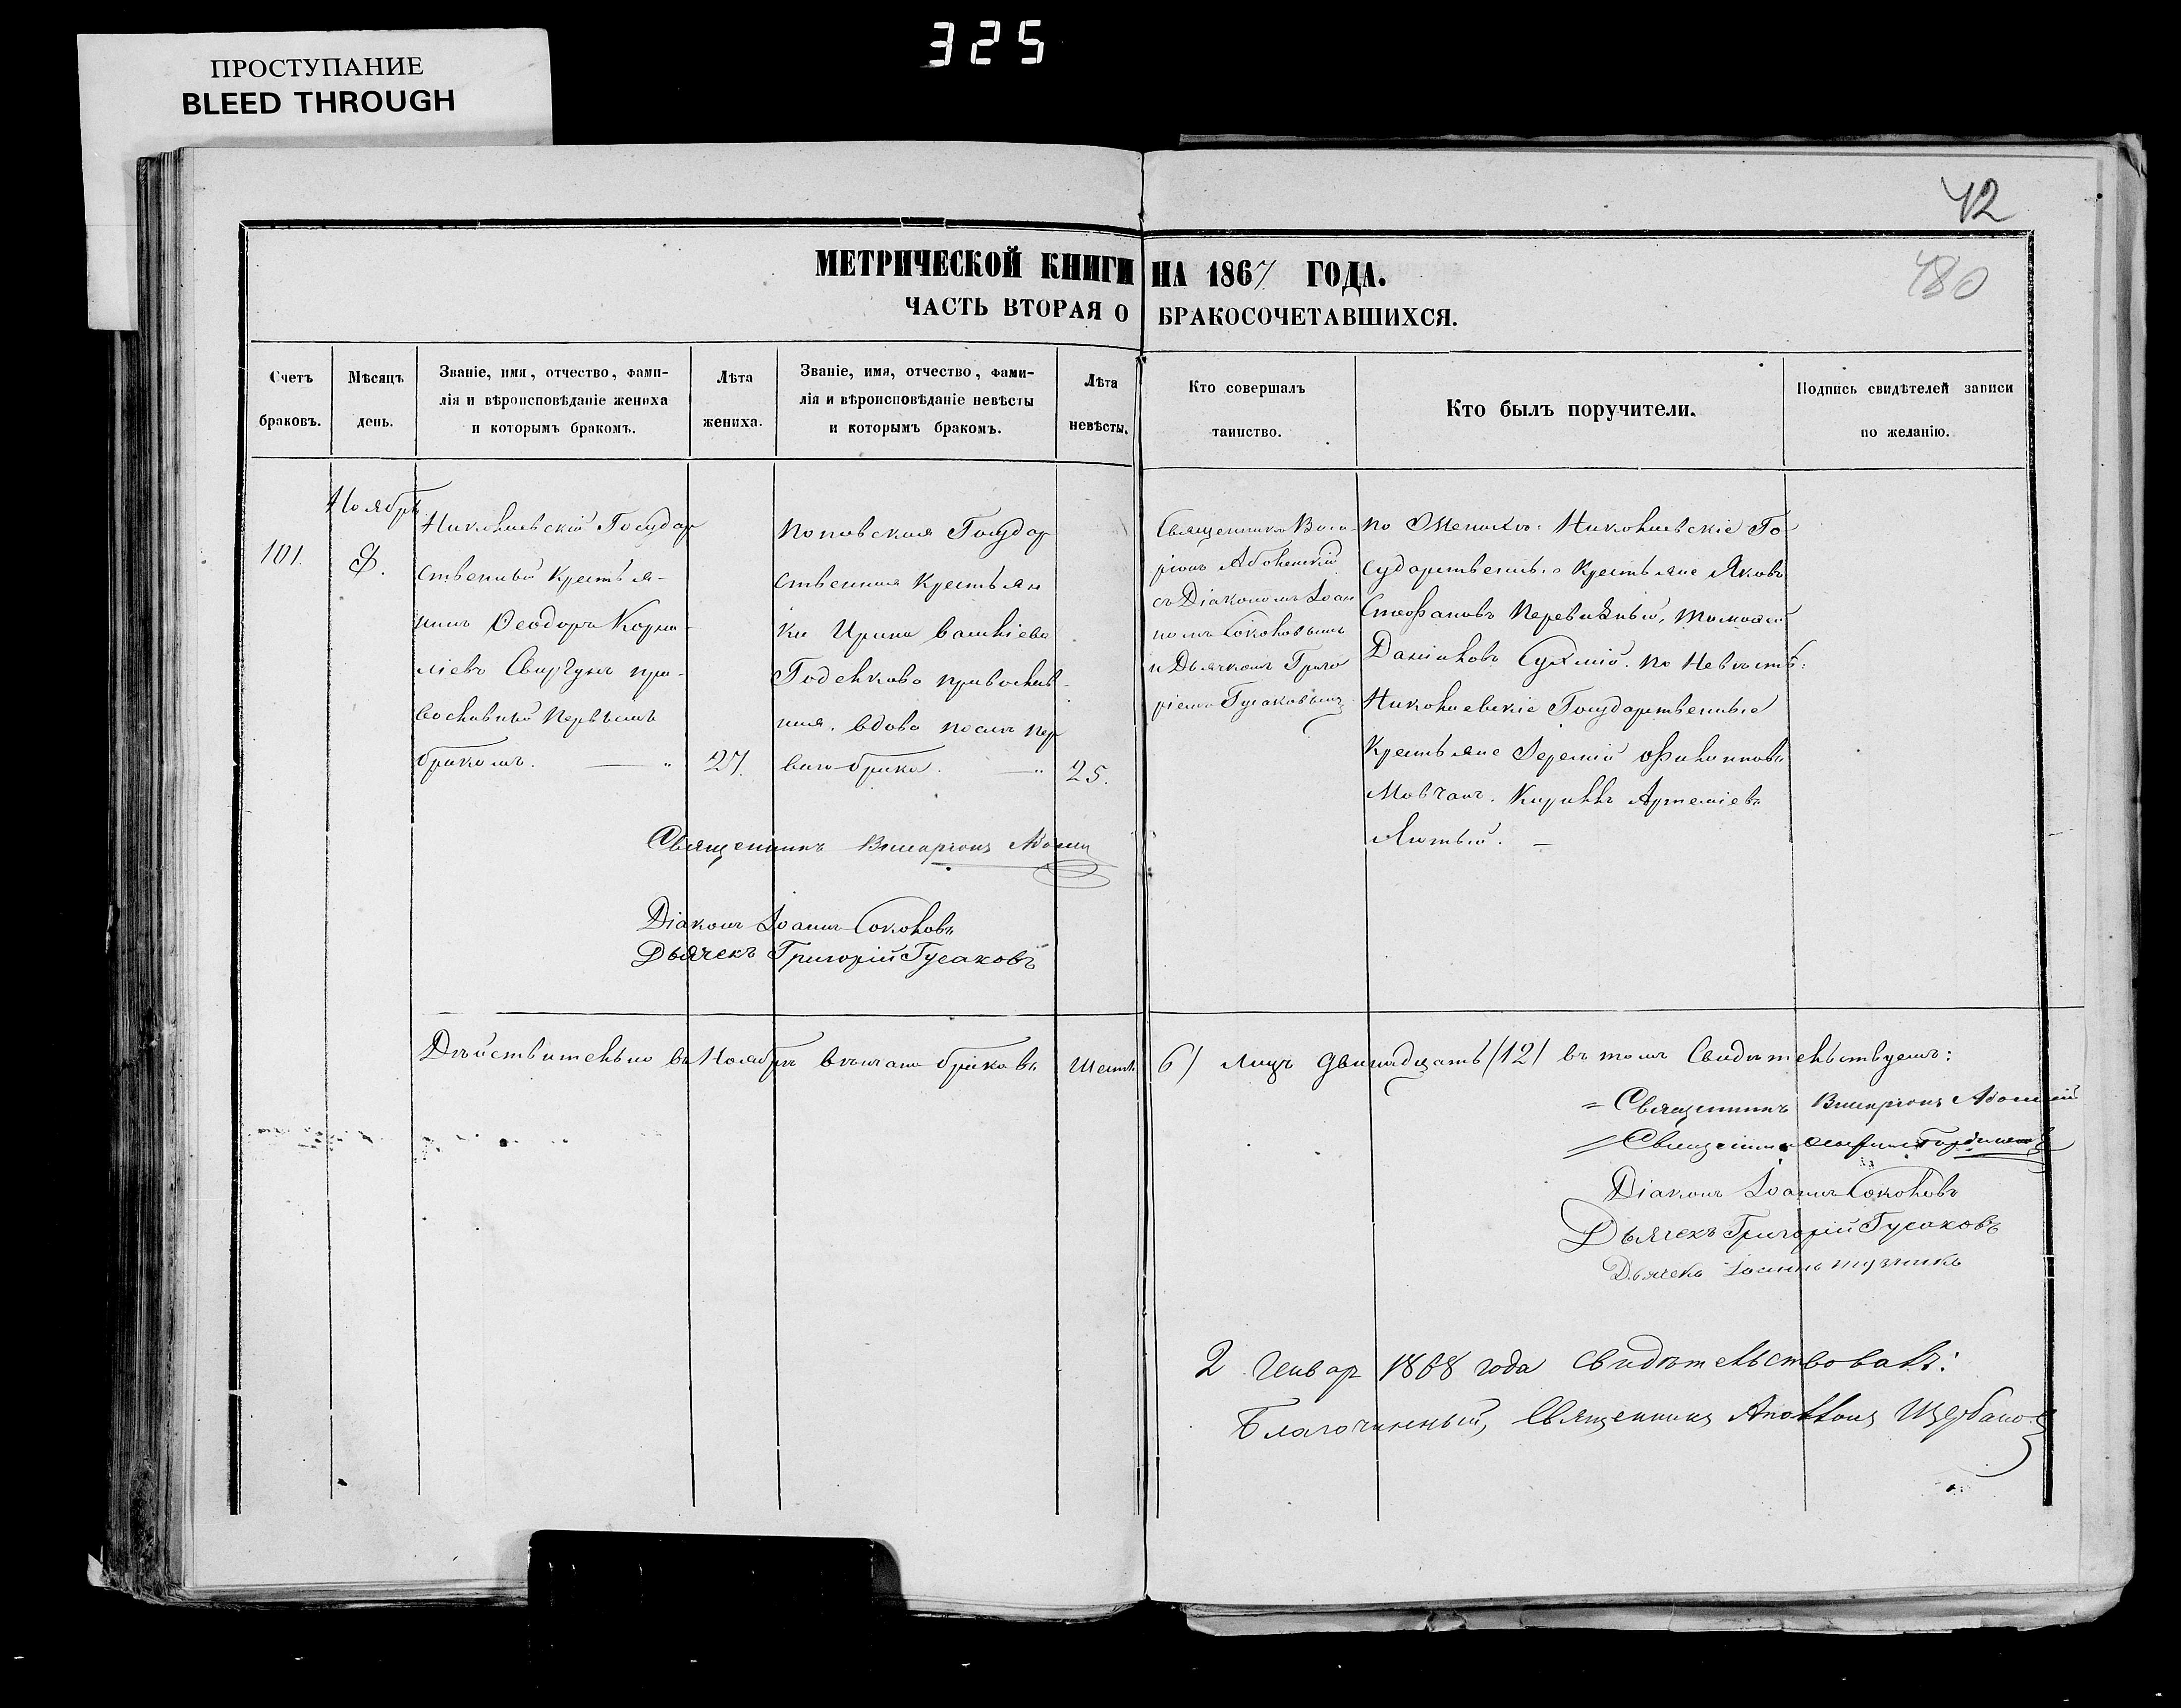 325
ПРОСТУПАНИЕ
BLEED THROUGH
42
480
МЕТРИЧЕСКОЙ КНИГИ НА 1867 ГОДА.
ЧАСТЬ ВТОРАЯ О БРАКОСОЧЕТАВШИХСЯ.
Счетъ браковъ.
Мѣсяцъ день.
Званіе, имя, отчество, фами-
лія и вѣроисповѣданіе жениха
и которымъ бракомъ.
Лѣта жениха.
Званіе, имя, отчество, фами-
лія и вѣроисповѣданіе невѣсты
и которымъ бракомъ.
Лѣта невѣсты.
Кто совершалъ таинство.
Кто былъ поручители.
Подпись свидѣтелей записи
по желанію.
101.
Ноябрь
8.
Николаевскій Государ
ственный крестья-
нинъ Ѳеодоръ Корни-
ліевъ Свиргунъ пра-
вославный первымъ
бракомъ.
27.
Поповская Государ
ственная крестьян
ка Ирина
Годенкова православ-
ная. вдова послѣ пер
ваго брака.
25.
Священникъ
ріонъ
съ Діакономъ Іоан
номъ Соколовымъ
и Дьячкомъ Григо
ріемъ Гусаковымъ
По Женихѣ: Николаевскіе Го
сударственные крестьяне Яковъ
Стефановъ
Даніиловъ По Невѣстѣ:
Николаевскіе Государственные
крестьяне Іеремій Филипповъ
Мовчанъ. Кириллъ Артеміевъ
Лютый.
Священникъ
Діаконъ Іоаннъ Соколовъ
Дьячекъ Григорій Гусаковъ
Дѣйствительно въ Ноябрѣ вѣнчано браковъ шесть 6) лицъ двѣнадцать (12) въ томъ Свидѣтельствуемъ:
Священникъ
Священникъ
Діаконъ Іоаннъ Соколовъ
Дьячекъ Григорій Гусаковъ
Дьячекъ Іоаннъ
2 Генвар 1868 года свидѣтельствовалъ:
Благочинный, Священникъ Аполлонъ